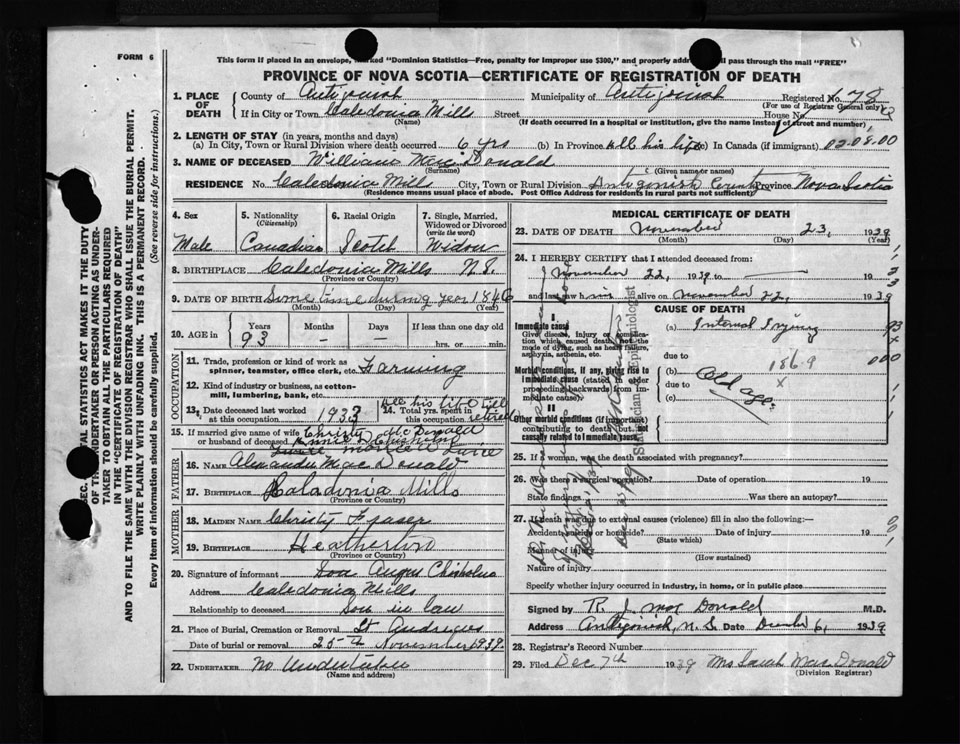 FORM 6
This form if placed in an envelope, marked "Dominion Statistics—Free, penalty for improper use $300," and properly addre pass through the mail "FREE"
PROVINCE OF NOVA SCOTIA—CERTIFICATE OF REGISTRATION OF DEATH
1. PLACE OF DEATH County of Antigonish Municipality of Antigonish Registered No. 78
(For use of Registrar General only)
If in City or Town Caledonia Mills Street House No.
(Name) (If death occurred in a hospital or institution, give the name instead of street and number)
2. LENGTH OF STAY (in years, months and days)
(a) In City, Town or Rural Division where death occurred 6 yrs (b) In Province All his life (c) In Canada (if immigrant) 02-08.00
3. NAME OF DECEASED William Mac Donald
(Surname) (Given name or names)
RESIDENCE No. Caledonia Mills City, Town or Rural Division Antigonish County Province Nova Scotia
(Residence means usual place of abode. Post Office Address for residents in rural parts not sufficient)
4. Sex 5. Nationality (Citizenship) 6. Racial Origin 7. Single, Married, Widowed or Divorced (write the word)
Male Canadian Scotch Widow
8. BIRTHPLACE Caledonia Mills N.S.
(Province or Country)
9. DATE OF BIRTH Some time during year 1846
(Month) (Day) (Year)
10. AGE in Years Months Days If less than one day old
93 – – hrs. or min.
OCCUPATION
11. Trade, profession or kind of work as spinner, teamster, office clerk, etc. Farming
12. Kind of industry or business, as cotton-mill, lumbering, bank, etc.
13. Date deceased last worked at this occupation 1933 14. Total yrs. spent in this occupation All his life till retired
15. If married give name of wife or husband of deceased Christy McDonald
Annie Chisholm
married twice
FATHER
16. NAME Alexander Mac Donald
17. BIRTHPLACE Caladonia Mills
(Province or Country)
MOTHER
18. MAIDEN NAME Christy Fraser
19. BIRTHPLACE Heatherton
(Province or Country)
20. Signature of informant Angus Chisholm
Address Caledonia Mills
Relationship to deceased Son in law
21. Place of Burial, Cremation or Removal St Andrews
Date of burial or removal 25th November 1939
22. UNDERTAKER No Undertaker
(Name and address)
MEDICAL CERTIFICATE OF DEATH
23. DATE OF DEATH November 23, 1939
(Month) (Day) (Year)
24. I HEREBY CERTIFY that I attended deceased from:
November 22, 1939 to — 193
and last saw him alive on November 22, 1939
CAUSE OF DEATH
I
Immediate cause (a) Internal Injury
Give disease, injury or complication which caused death, not the mode of dying, such as heart failure, asphyxia, asthenia, etc.
due to
Morbid conditions, if any, giving rise to immediate cause (stated in order proceeding backwards from immediate cause).
(b) Old age
due to
186.9
x
(c)
II
Other morbid conditions (if important) contributing to death but not causally related to immediate cause.
25. If a woman, was the death associated with pregnancy?
26. Was there a surgical operation? Date of operation 19
State findings Was there an autopsy?
27. If death was due to external causes (violence) fill in also the following:—
Accident, suicide or homicide? Date of injury 19
(State which)
Manner of injury
(How sustained)
Nature of injury
Specify whether injury occurred in industry, in home, or in public place
Signed by R. J. Mac Donald M.D.
Address Antigonish, N.S. Date December 6, 1939
28. Registrar's Record Number
29. Filed Dec 7th 1939 Mrs Sarah Mac Donald
(Division Registrar)
OF THE UNDERTAKER OR PERSON ACTING AS UNDERTAKER TO OBTAIN ALL THE PARTICULARS REQUIRED IN THE "CERTIFICATE OF REGISTRATION OF DEATH"
AND TO FILE THE SAME WITH THE DIVISION REGISTRAR WHO SHALL ISSUE THE BURIAL PERMIT.
WRITE PLAINLY WITH UNFADING INK. THIS IS A PERMANENT RECORD.
Every item of information should be carefully supplied. (See reverse side for instructions.)